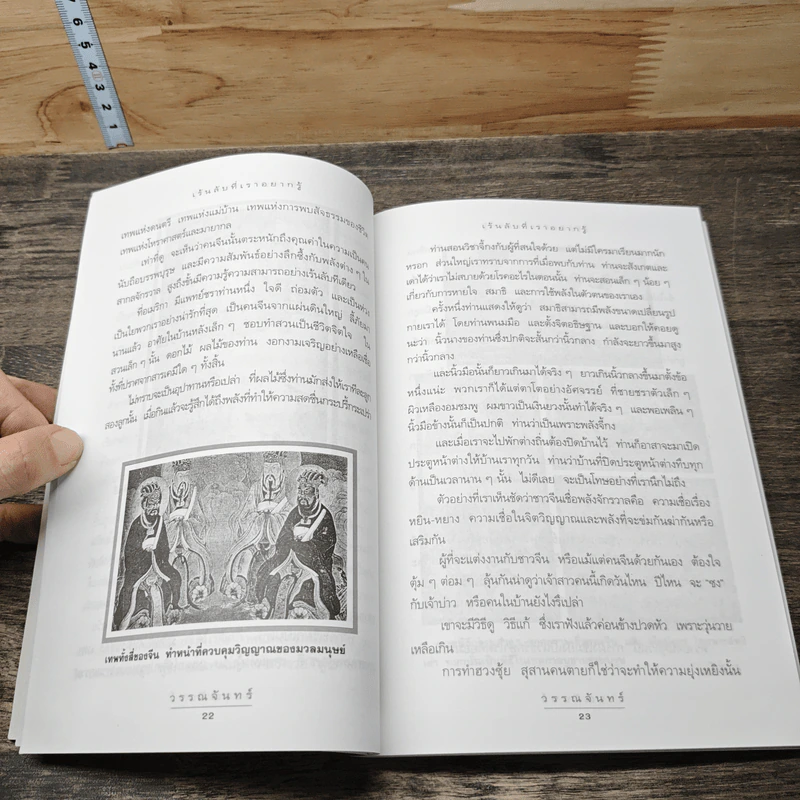 7 6 5 4 3 2 1
เร้นลับที่เราอยากรู้
เทพแห่งดนตรี เทพแห่งแม่บ้าน เทพแห่งการพบสัจธรรมของชีวิต
เทพแห่งโหราศาสตร์และมายากล
เท่าที่ดู จะเห็นว่าคนจีนนั้นตระหนักถึงคุณค่าในความเป็นคน
นับถือบรรพบุรุษ และมีความสัมพันธ์อย่างลึกซึ้งกับพลังต่าง ๆ ใน
สากลจักรวาล สูงถึงขั้นมีความรู้ความสามารถอย่างเร้นลับทีเดียว
ที่อเมริกา มีแพทย์ชราท่านหนึ่ง ใจดี ถ่อมตัว และเป็นห่วง
เป็นใยพวกเราอย่างน่ารักที่สุด เป็นคนจีนจากแผ่นดินใหญ่ ลี้ภัยมา
นานแล้ว อาศัยในบ้านหลังเล็ก ๆ ชอบทำสวนเป็นชีวิตจิตใจ ใน
สวนเล็ก ๆ นั้น ดอกไม้ ผลไม้ของท่าน งอกงามเจริญอย่างเหลือเชื่อ
ทั้งที่ปราศจากสารเคมีใด ๆ ทั้งสิ้น
ไม่ทราบจะเป็นอุปทานหรือเปล่า ที่ผลไม้ซึ่งท่านมักส่งให้เราทีละลูก
สองลูกนั้น เมื่อกินแล้วจะรู้สึกได้ถึงพลังที่ทำให้ความสดชื่นกระปรี้กระเปร่า
เทพทั้งสี่ของจีน ทำหน้าที่ควบคุมวิญญาณของมวลมนุษย์
วรรณจันทร์
22
เร้นลับที่เราอยากรู้
ท่านสอนวิชาจี้กงกับผู้ที่สนใจด้วย แต่ไม่มีใครมาเรียนมากนัก
หรอก ส่วนใหญ่เราทราบจากการที่เมื่อพบกับท่าน ท่านจะสังเกตและ
เดาได้ว่าเราไม่สบายด้วยโรคอะไรในตอนนั้น ท่านจะสอนเล็ก ๆ น้อย ๆ
เกี่ยวกับการหายใจ สมาธิ และการใช้พลังในตัวตนของเราเอง
ครั้งหนึ่งท่านแสดงให้ดูว่า สมาธิสามารถมีพลังขนาดเปลี่ยนรูป
กายเราได้ โดยท่านพนมมือ และตั้งจิตอธิษฐาน และบอกให้คอยดู
นะว่า นิ้วนางของท่านซึ่งปกติจะสั้นกว่านิ้วกลาง กำลังจะยาวขึ้นมาสูง
กว่านิ้วกลาง
และนิ้วมือนั้นก็ยาวเกินมาได้จริง ๆ ยาวเกินนิ้วกลางขึ้นมาตั้งข้อ
หนึ่งแน่ะ พวกเราก็ได้แต่ตาโตอย่างอัศจรรย์ ที่ชายชราตัวเล็ก ๆ
ผิวเหลืองอมชมพู ผมขาวเป็นเงินยวงนั้นทำได้จริง ๆ และพอเพลิน ๆ
นิ้วมือข้างนั้นก็เป็นปกติ ท่านว่าเป็นเพราะพลังจี้กง
และเมื่อเราจะไปพักต่างถิ่นต้องปิดบ้านไว้ ท่านก็อาสาจะมาเปิด
ประตูหน้าต่างให้บ้านเราทุกวัน ท่านว่าบ้านที่ปิดประตูหน้าต่างทึบทุก
ด้านเป็นเวลานาน ๆ นั้น ไม่ดีเลย จะเป็นโทษอย่างที่เรานึกไม่ถึง
ตัวอย่างที่เราเห็นชัดว่าชาวจีนเชื่อพลังจักรวาลคือ ความเชื่อเรื่อง
หยิน-หยาง ความเชื่อในจิตวิญญาณและพลังที่จะข่มกันฆ่ากันหรือ
เสริมกัน
ผู้ที่จะแต่งงานกับชาวจีน หรือแม้แต่คนจีนด้วยกันเอง ต้องใจ
ตุ้ม ๆ ต่อม ๆ ลุ้นกันน่าดูว่าเจ้าสาวคนนี้เกิดวันไหน ปีไหน จะ “ชง”
กับเจ้าบ่าว หรือคนในบ้านยังไงรึเปล่า
เขาจะมีวิธีดู วิธีแก้ ซึ่งเราฟังแล้วค่อนข้างปวดหัว เพราะวุ่นวาย
เหลือเกิน
การทำฮวงซุ้ย สุสานคนตายก็ใช่ว่าจะทำให้ความยุ่งเหยิงนั้น
วรรณจันทร์
23